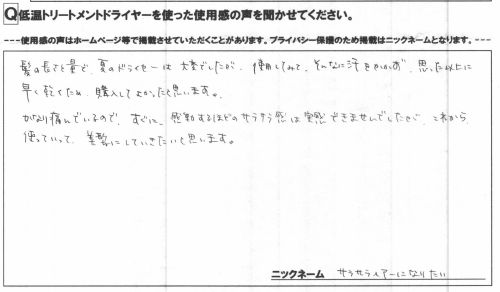 Q低温トリートメントドライヤーを使った使用感の声を聞かせてください。
---使用感の声はホームページ等で掲載させていただくことがあります。プライバシー保護のため掲載はニックネームとなります。---
髪の長さと量で、夏のドライヤーは大変でしたが、使用してみて、そんなに汗をかかず、思った以上に
早く乾くため、購入してよかったと思います。
かなり痛んでいるので、すぐに、感動するほどのサラサラ感は実感できませんでしたが、これから
使っていって、美髪にしていきたいと思います。
ニックネーム サラサラヘアーになりたい